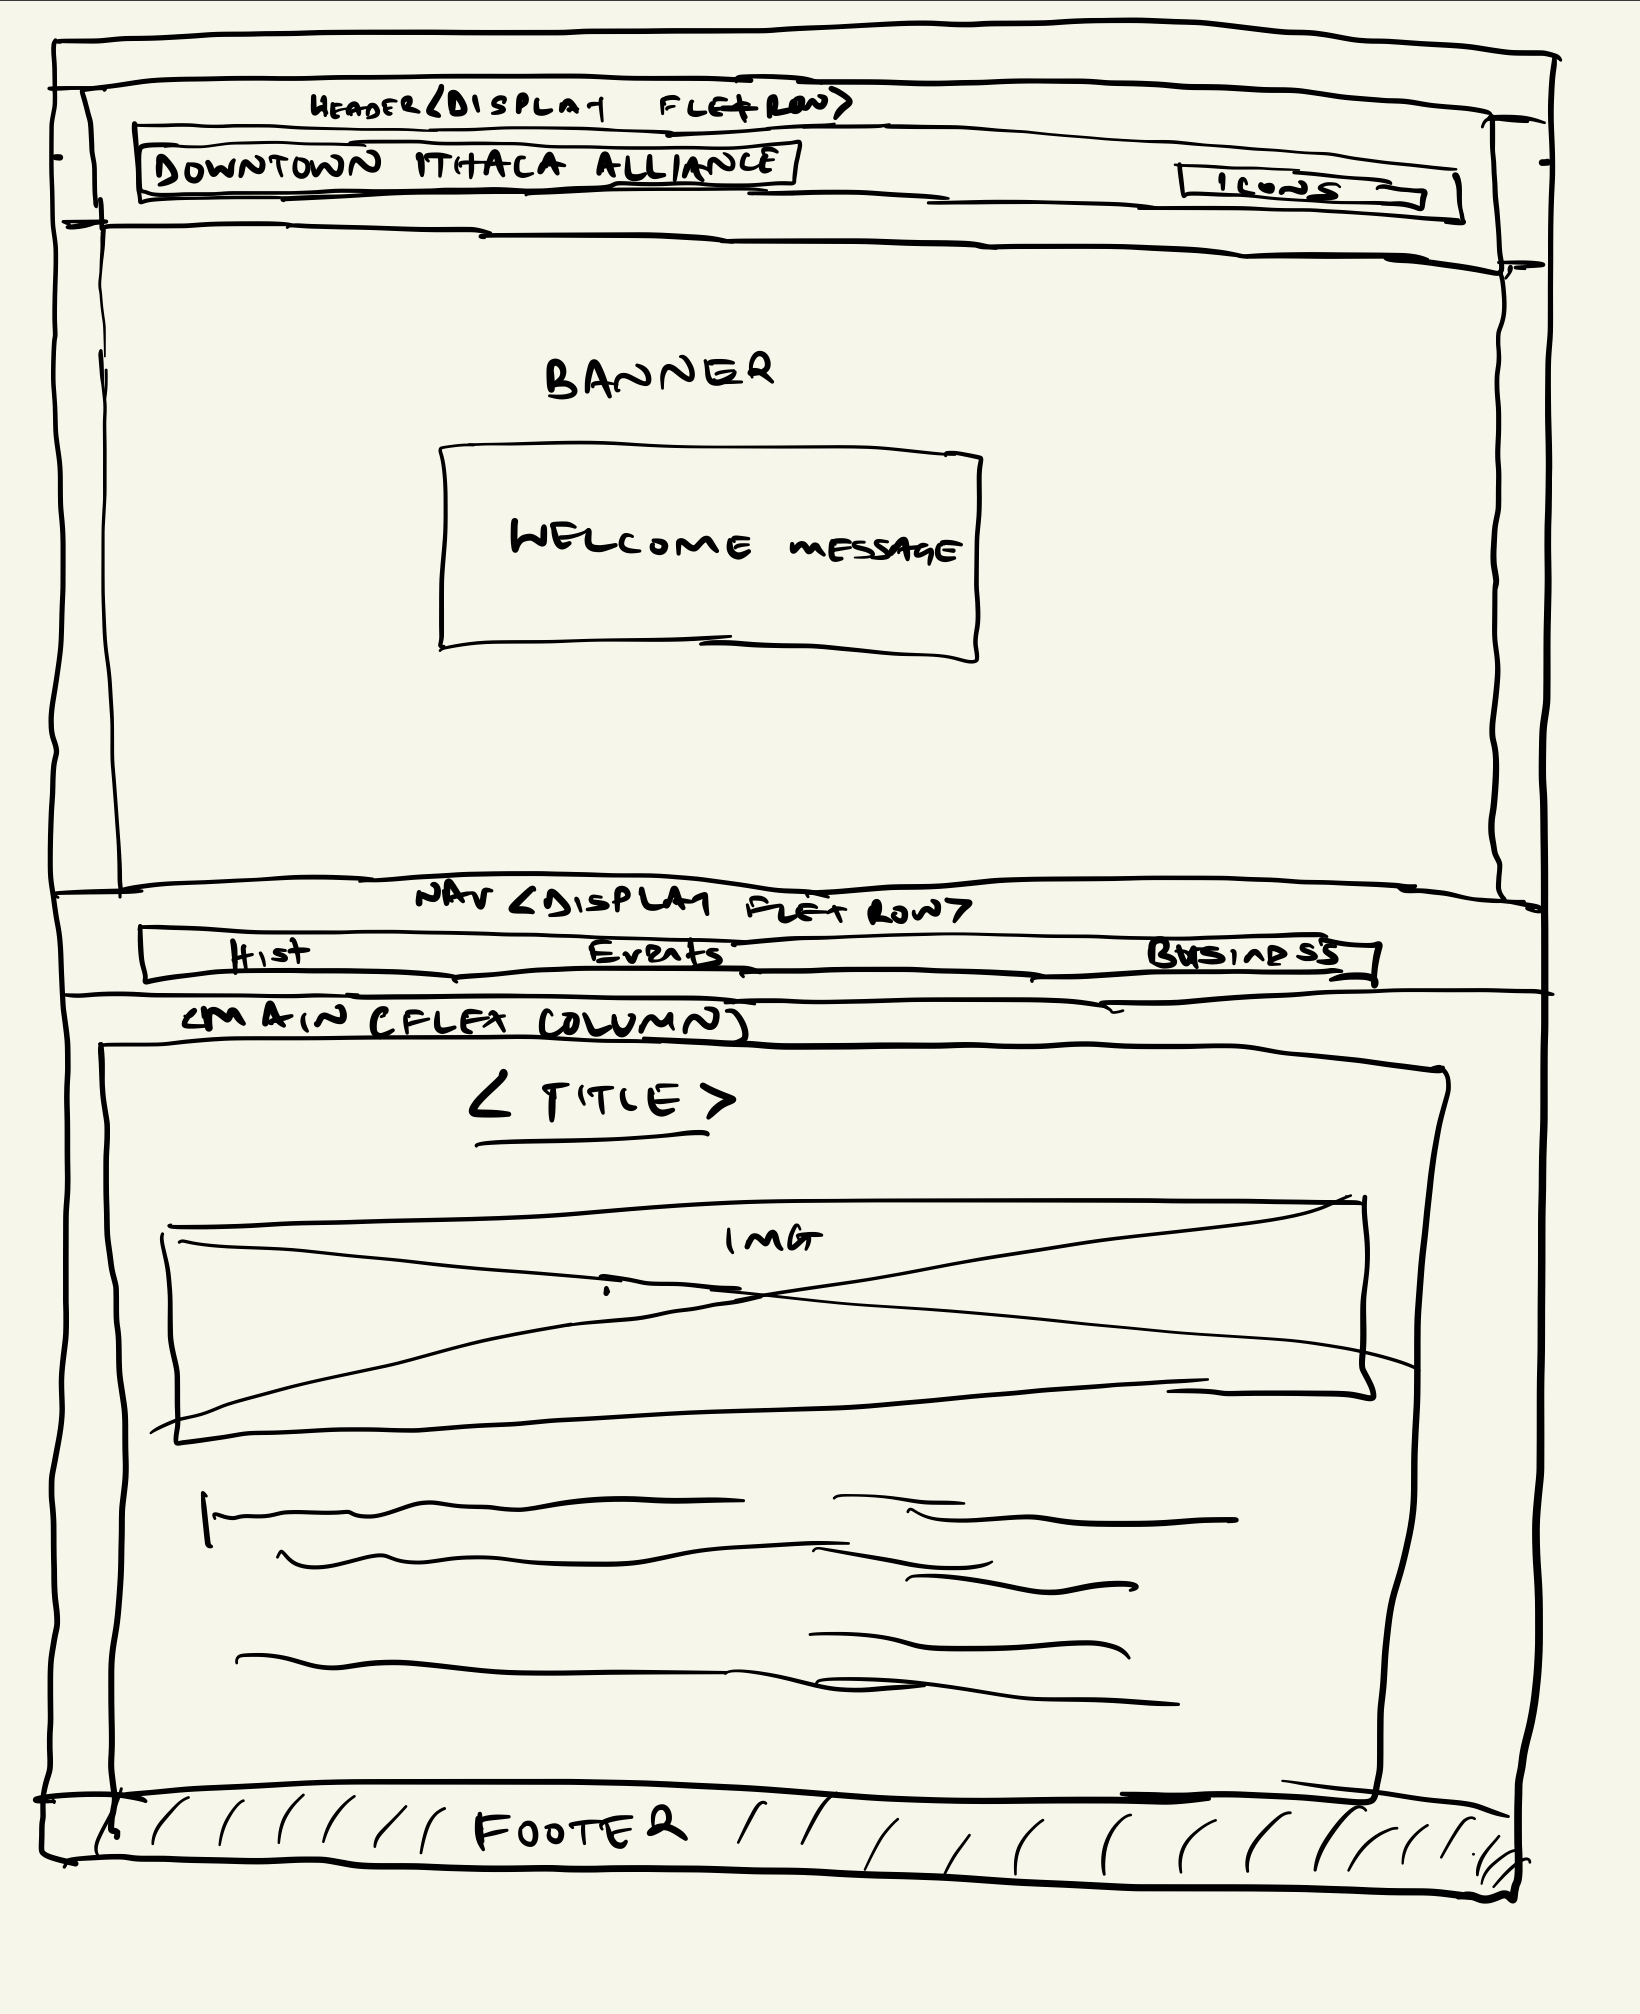 HEADER <DISPLAY FLEX ROW>
DOWNTOWN ITHACA ALLIANCE
ICONS
BANNER
WELCOME MESSAGE
NAV <DISPLAY FLEX ROW>
Hist Events Business
<MAIN (FLEX COLUMN)
< TITLE >
IMG
FOOTER